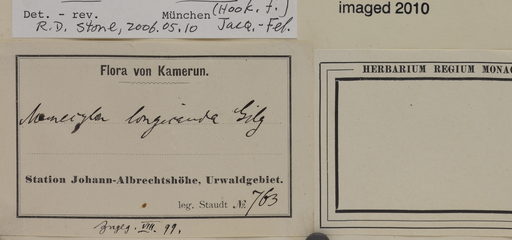 (Hook. f.)
Det. - rev. München
R.D. Stone, 2006.05.10 Jacq.-Fel.
imaged 2010
Flora von Kamerun.
Memecylon longicauda Gilg
Station Johann-Albrechtshöhe, Urwaldgebiet.
leg. Staudt № 763
VIII. 99.
HERBARIUM REGIUM MONAC